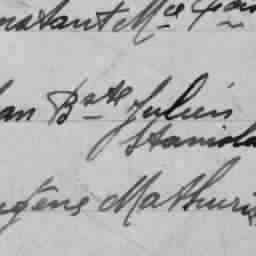 nstant Mce
an Bste Julien
Stanisla
ugène Mathurin